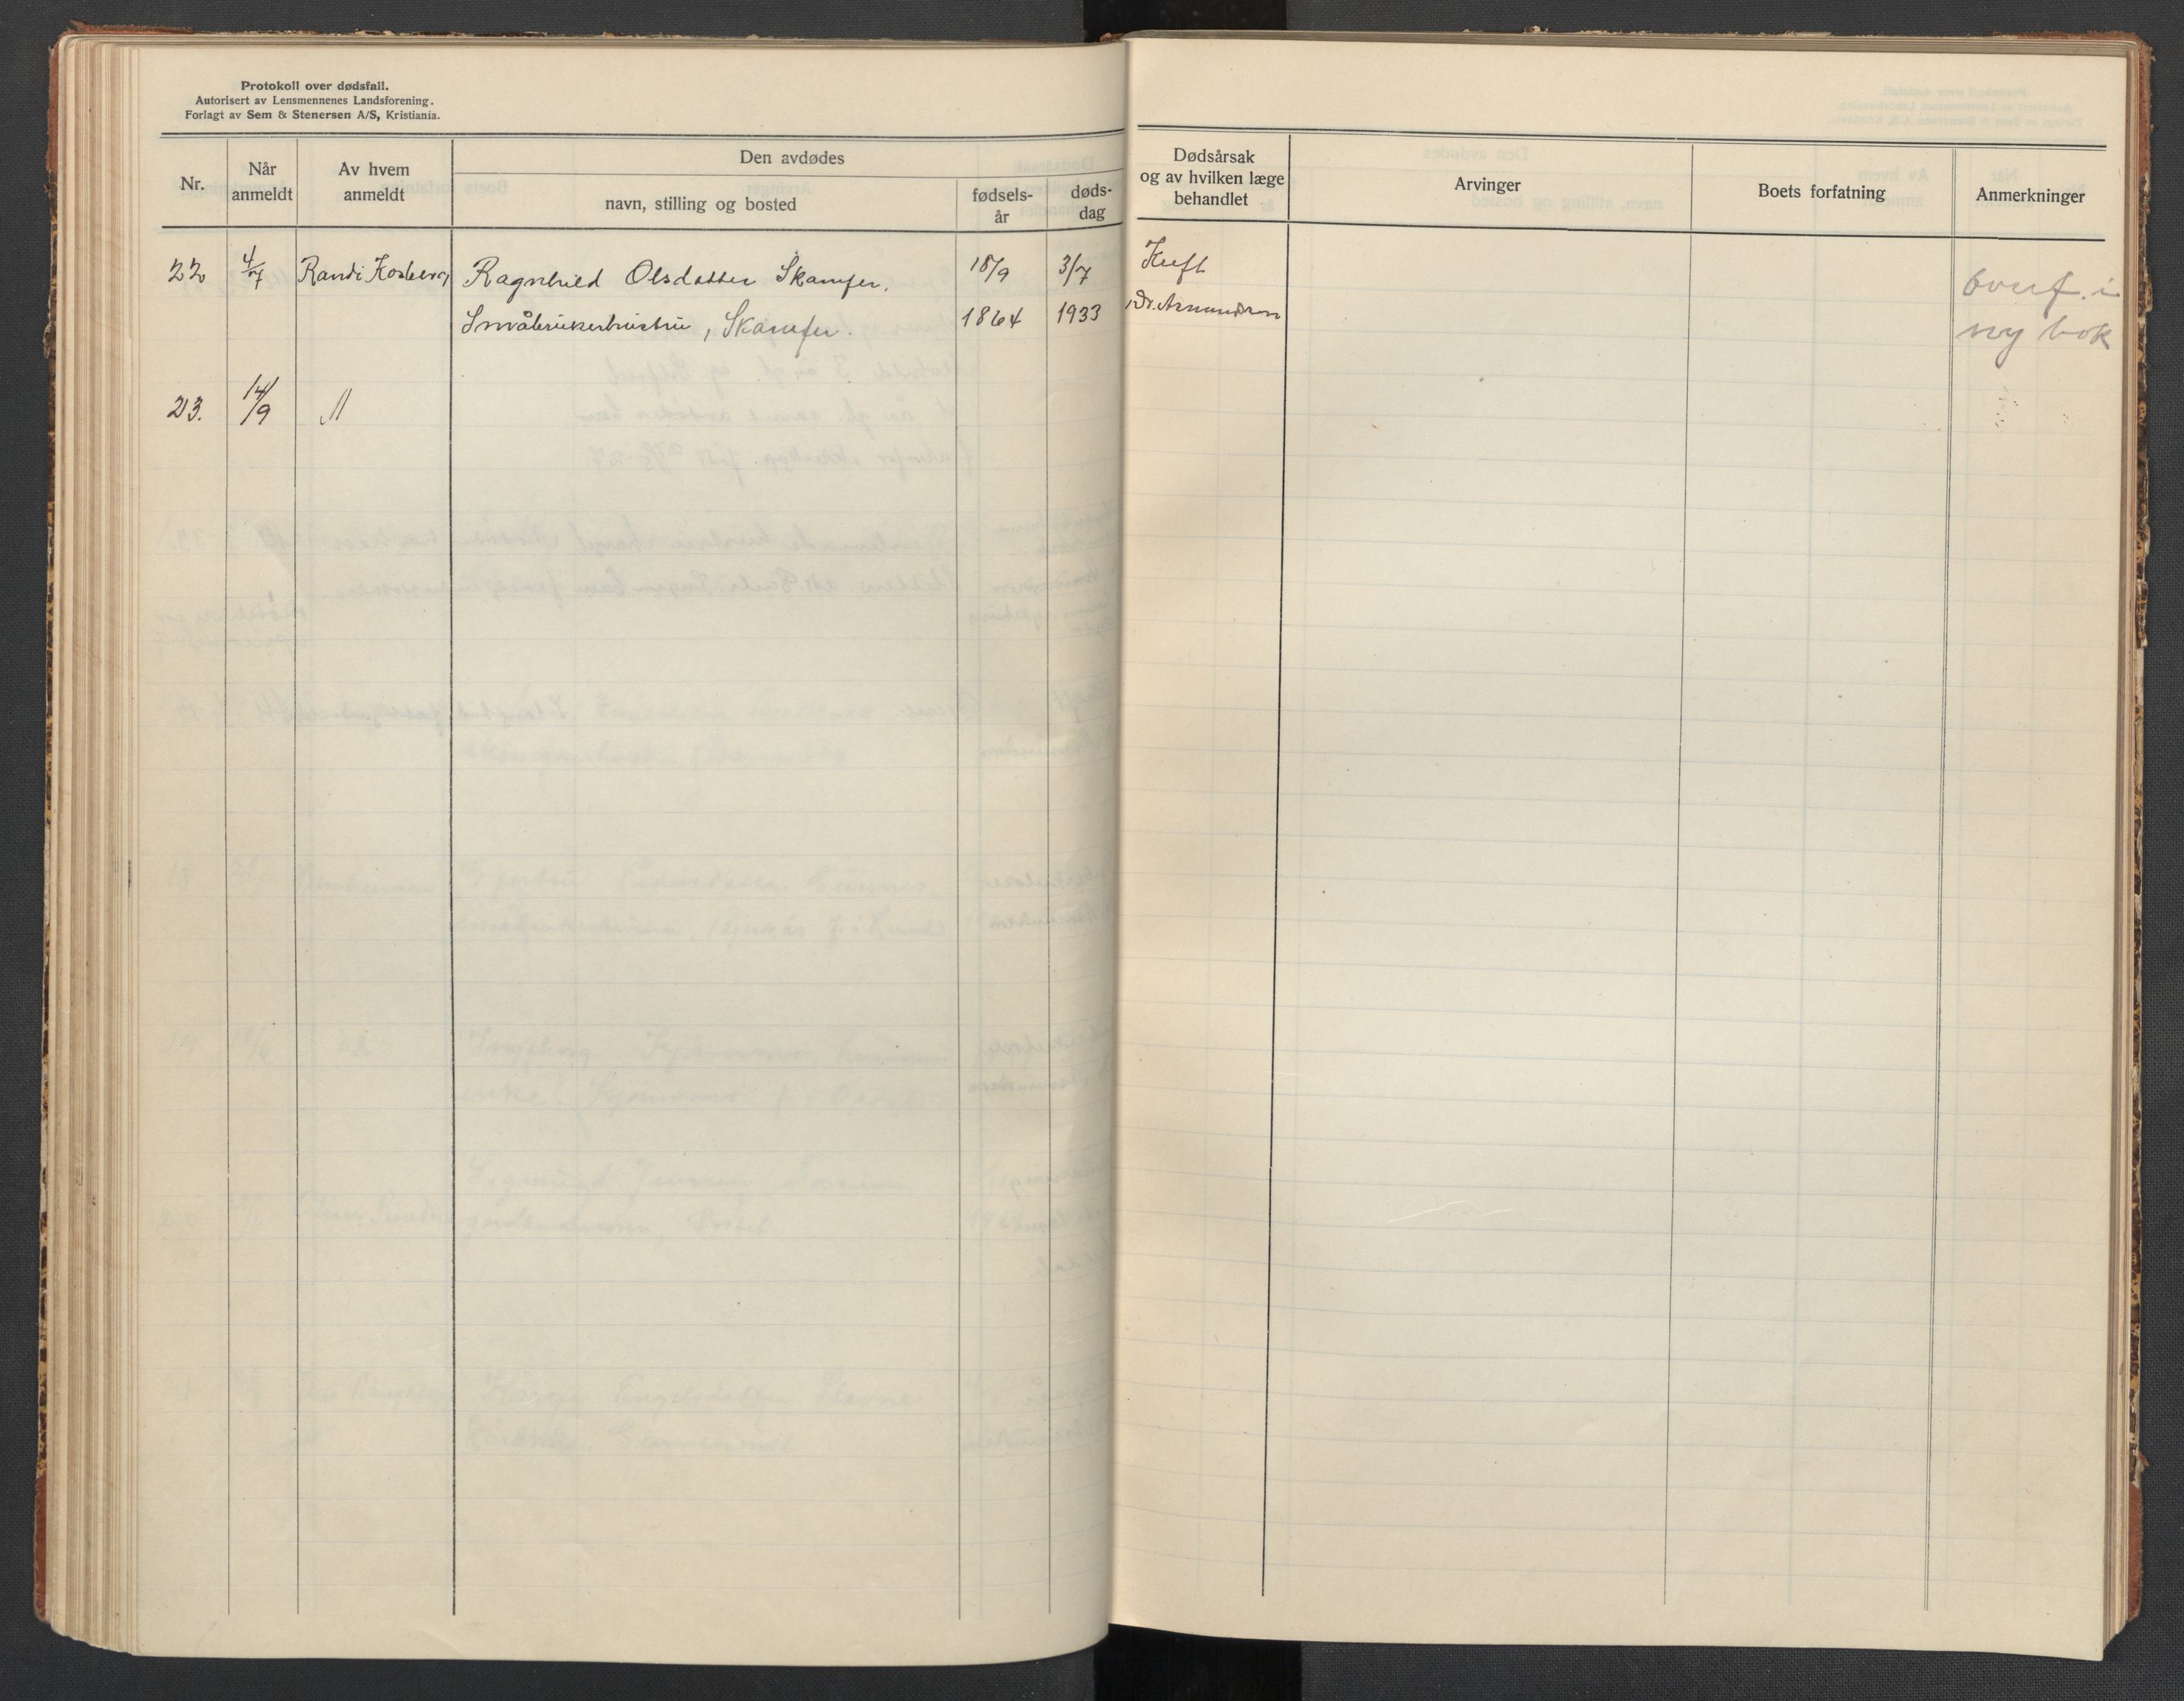 Protokoll over dødsfall.
Autorisert av Lensmennenes Landsforening.
Forlagt av Sem & Stenersen A/S, Kristiania.
Nr.
Når anmeldt
Av hvem anmeldt
Den avdødes
navn, stilling og bosted
fødsels-år
døds-dag
Dødsårsak og av hvilken læge behandlet
Arvinger
Boets forfatning
Anmerkninger
22 4/7 Randi Kosberg Ragnhild Olsdatter Skamfer. 18/9 3/7 Kreft
Småbrukerhustru, Skamfer. 1864 1933 Dr. Amundsen
overf. i
ny bok
23. 14/9